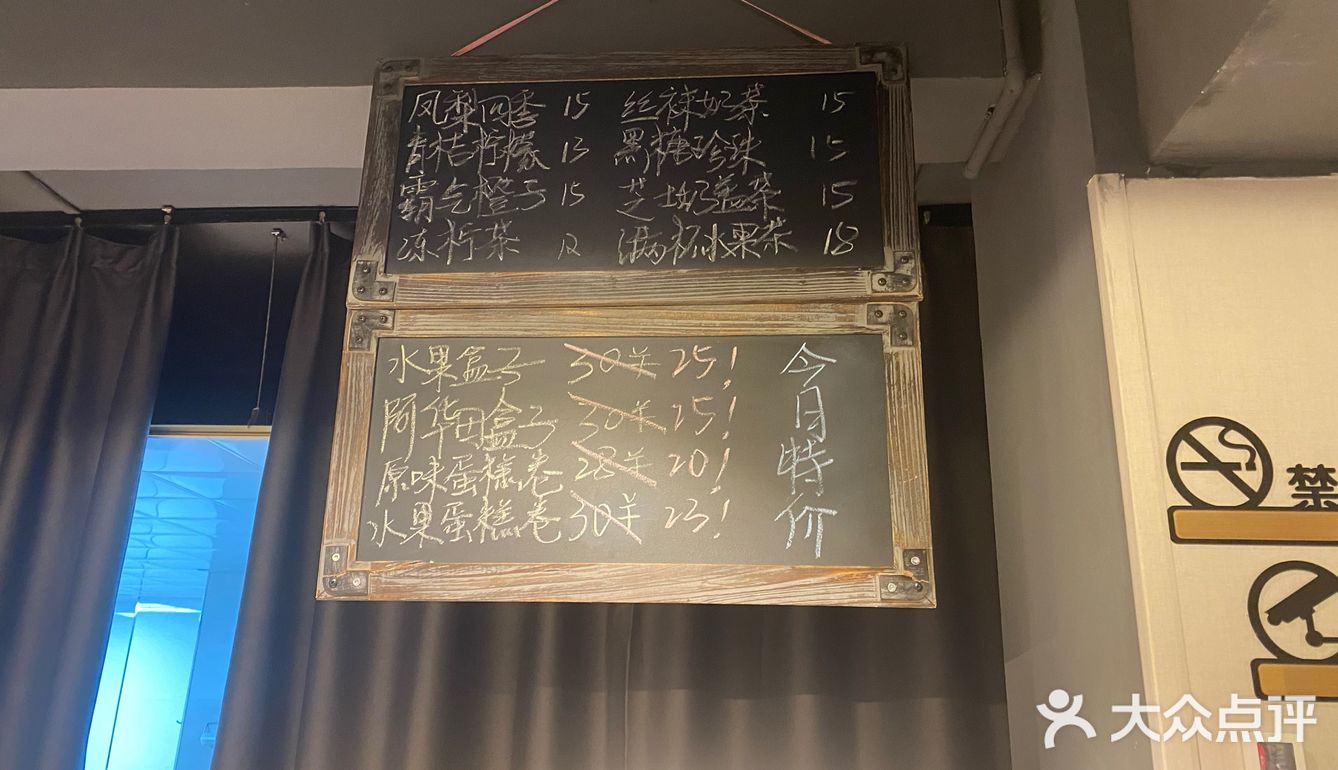 凤梨四季 15 丝袜奶茶 15
青桔柠檬 13 黑糖珍珠 15
霸气橙子 15 芝士奶盖茶 15
冻柠茶 12 满杯水果茶 18
水果盒子 30羊 25!
阿华田盒子 30羊 25!
原味蛋糕卷 28羊 20!
水果蛋糕卷 30羊 23!
今日特价
禁
大众点评